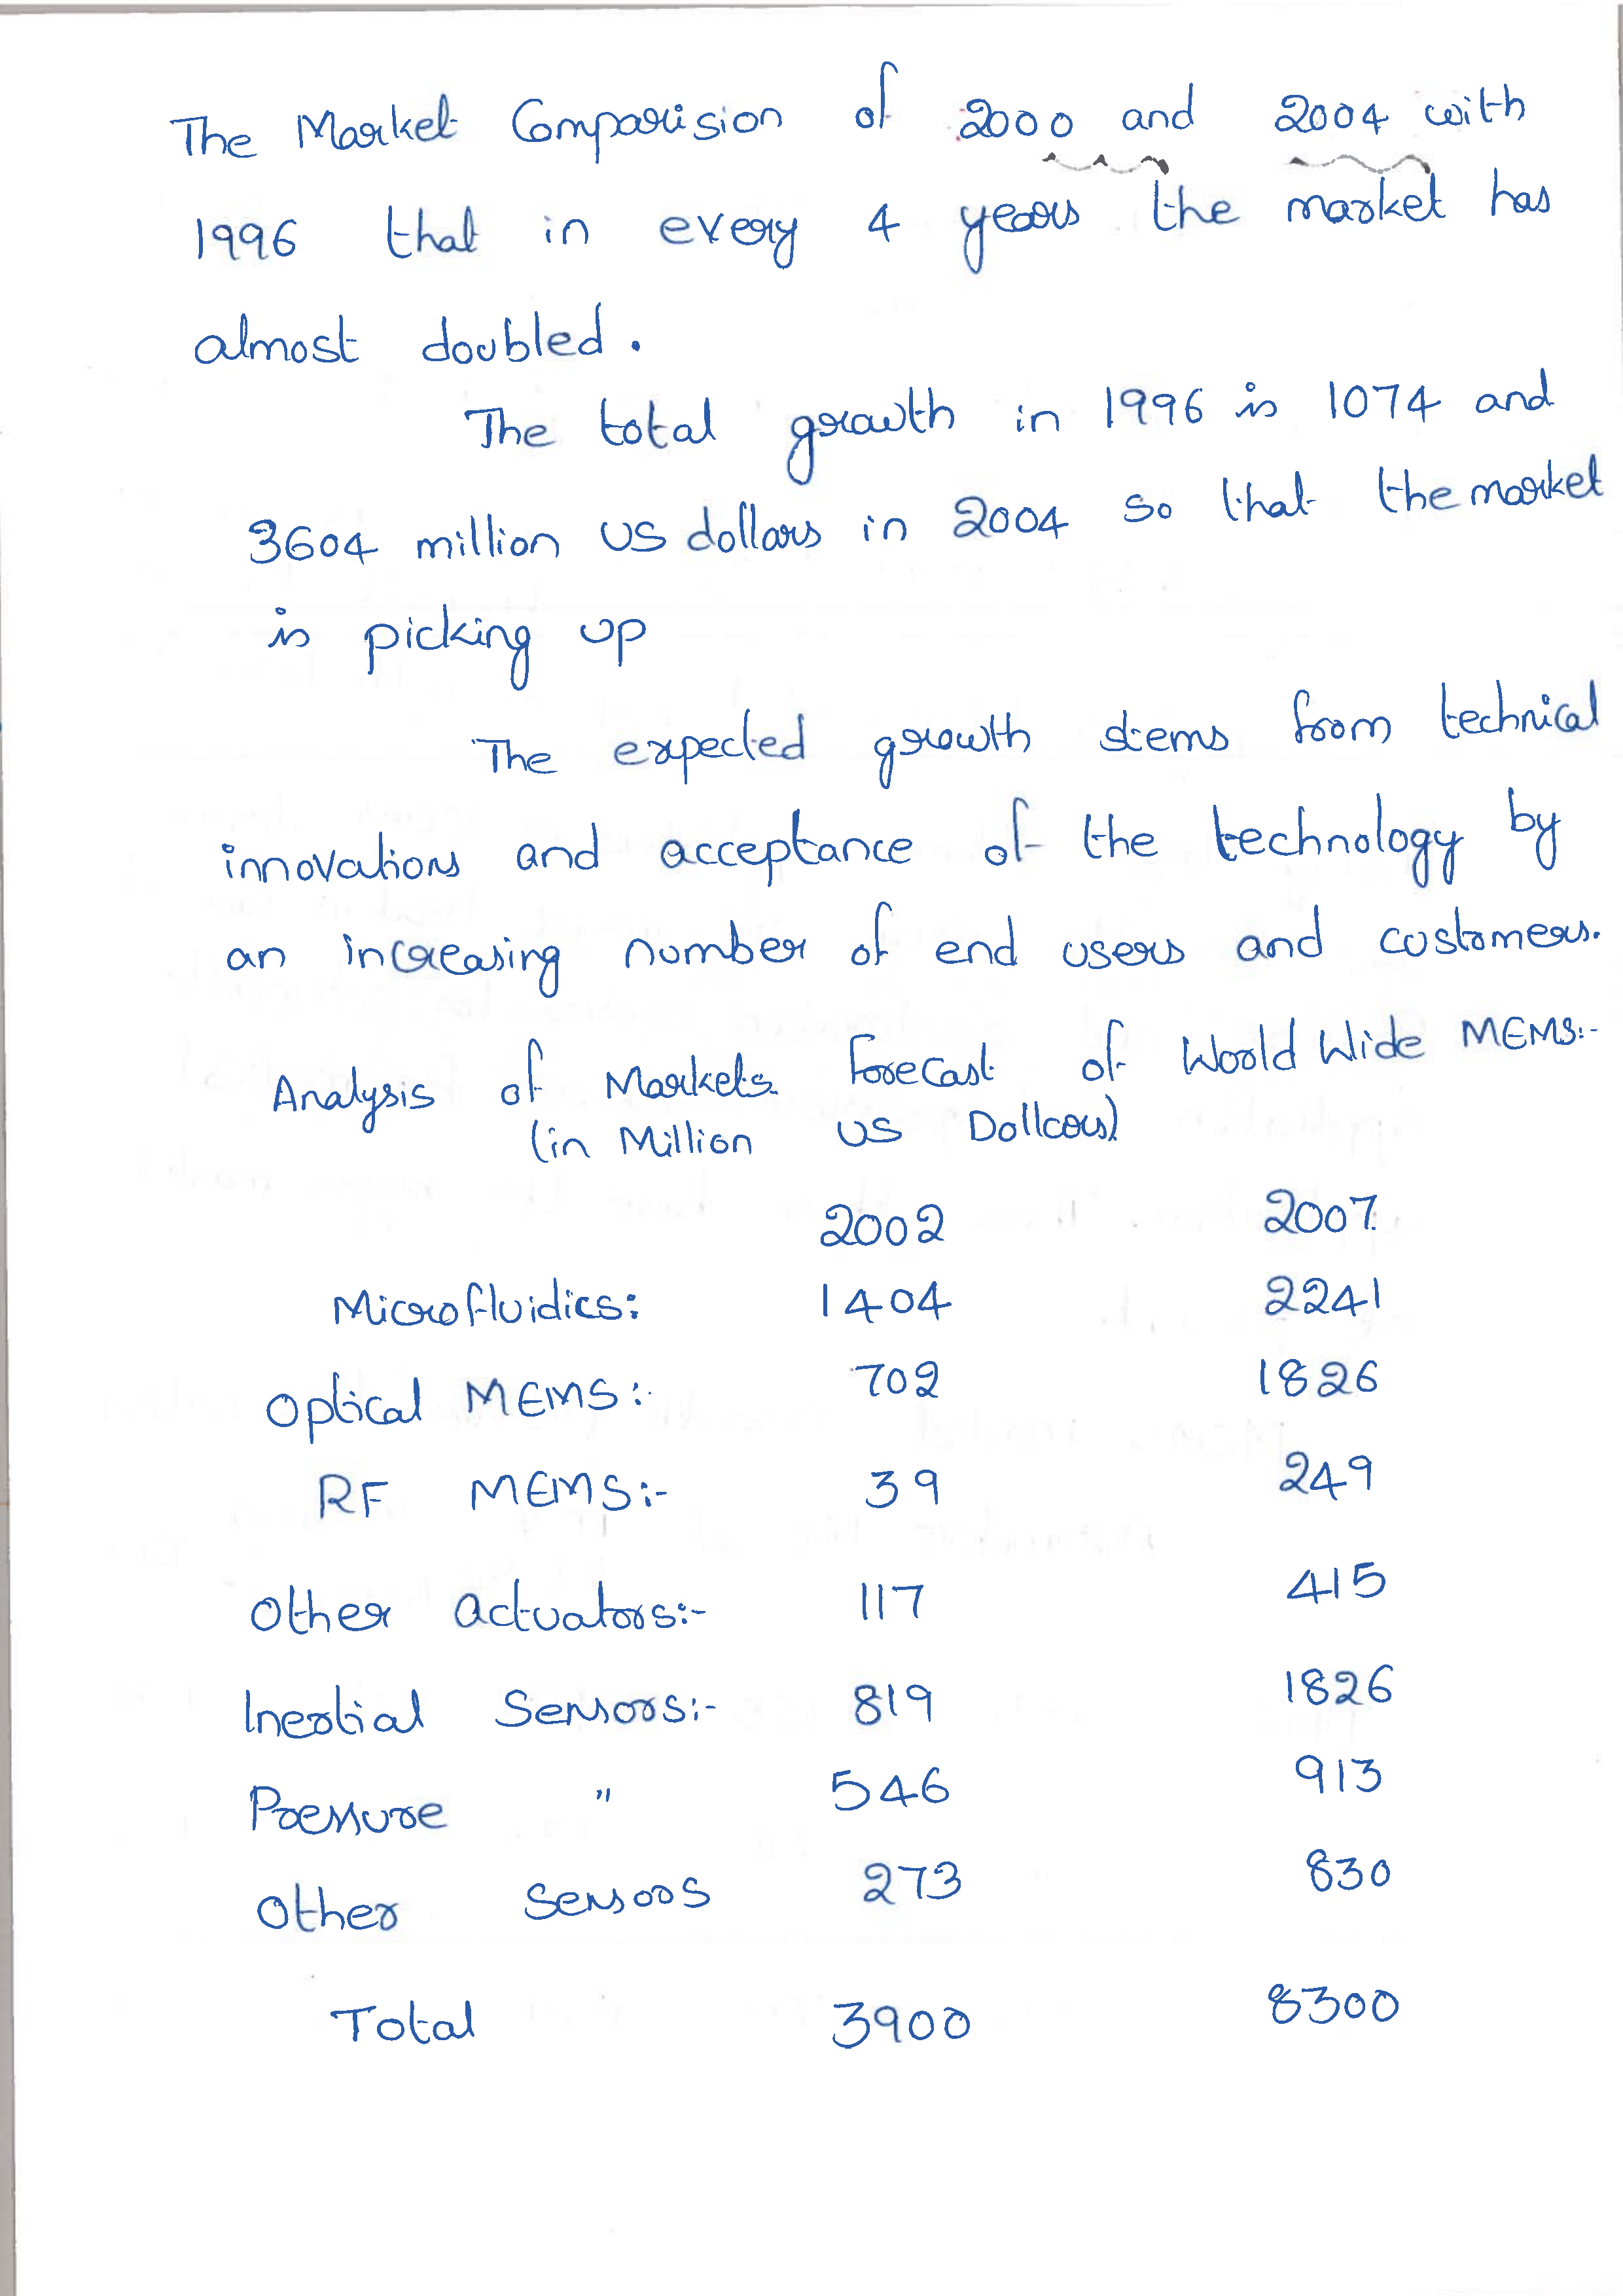 The Market Comparision of 2000 and 2004 with
1996 that in every 4 years the market has
almost doubled.
The total growth in 1996 is 1074 and
3604 million US dollars in 2004 so that the market
is picking up
The expected growth stems from technical
innovations and acceptance of the technology by
an increasing number of end users and customers.
Analysis of Markets Forecast of World Wide MEMS:-
(in Million US Dollars)
2002 2007
Microfluidics: 1404 2241
Optical MEMS:- 702 1826
RF MEMS:- 39 249
Other actuators:- 117 415
Inertial Sensors:- 819 1826
Pressure " 546 913
Other Sensors 273 830
Total 3900 8300